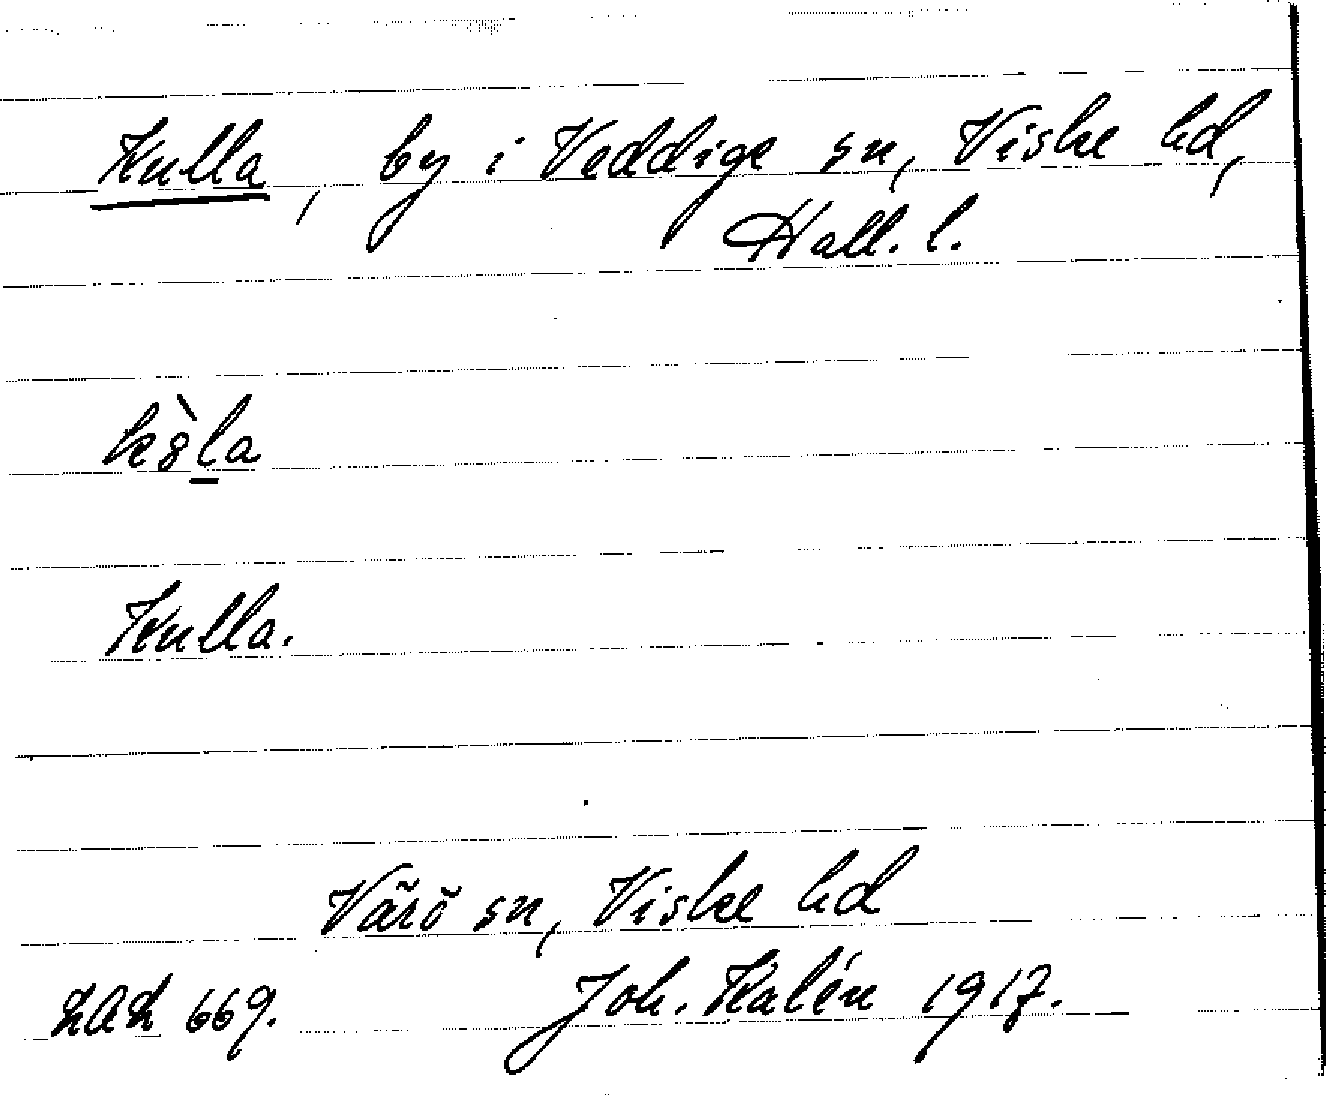 Kulla, by i Veddige sn, Viske hd,
Hall. l.
Kulla.
Värö sn, Viske hd
Joh. Kalén 1917.